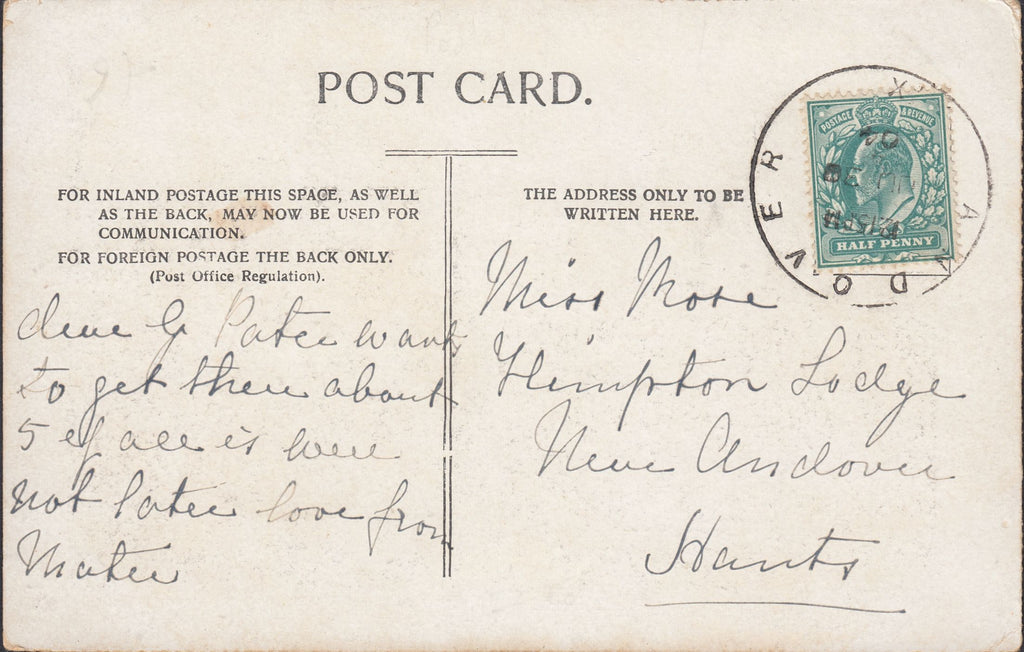 POST CARD.
FOR INLAND POSTAGE THIS SPACE, AS WELL
AS THE BACK, MAY NOW BE USED FOR
COMMUNICATION.
FOR FOREIGN POSTAGE THE BACK ONLY.
(Post Office Regulation).
dear G Pater wants
to get there about
5 if all is well
not later love from
Mater
THE ADDRESS ONLY TO BE
WRITTEN HERE.
Miss Rose
Lodge
Near Andover
Hants
POSTAGE & REVENUE
HALF PENNY
ANDOVER